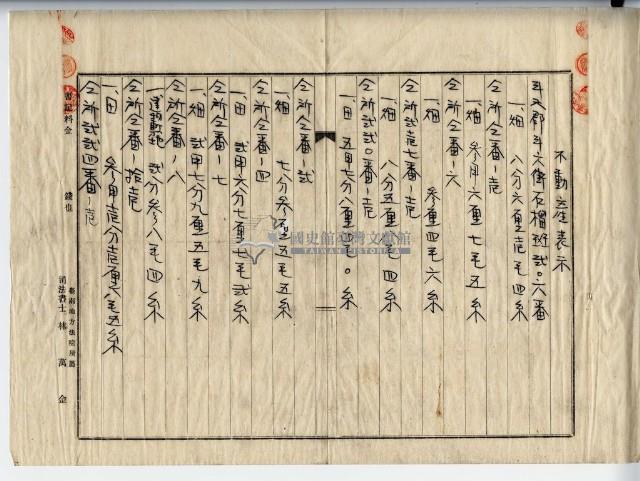 不動産表示
斗六郡斗六街石榴班貳〇六番
一、畑 八分六厘壱毛四糸
仝所仝番ノ壱
一、畑 参甲六厘七毛五糸
仝所仝番ノ六
一、畑 参厘四毛六糸
仝所貳壱七番ノ壱
一、畑 八分五厘毛四糸
仝所貳貳〇番ノ壱
一、田 五甲七分八厘毛〇糸
仝所仝番ノ貳
一、畑 七分参厘五毛五糸
仝所仝番ノ四
一、田 貳甲六分七厘七毛貳糸
仝所仝番ノ七
一、畑 貳甲七分九厘五毛九糸
仝所仝番ノ八
一、 貳分参厘八毛四糸
仝所仝番ノ拾壱
一、田 参甲壱分壱厘六毛五糸
仝所貳貳四番ノ壱
書記料金 錢也
臺南地方法院所屬
司法書士 林萬金
國史館臺灣文獻館
TAIWAN HISTORICA